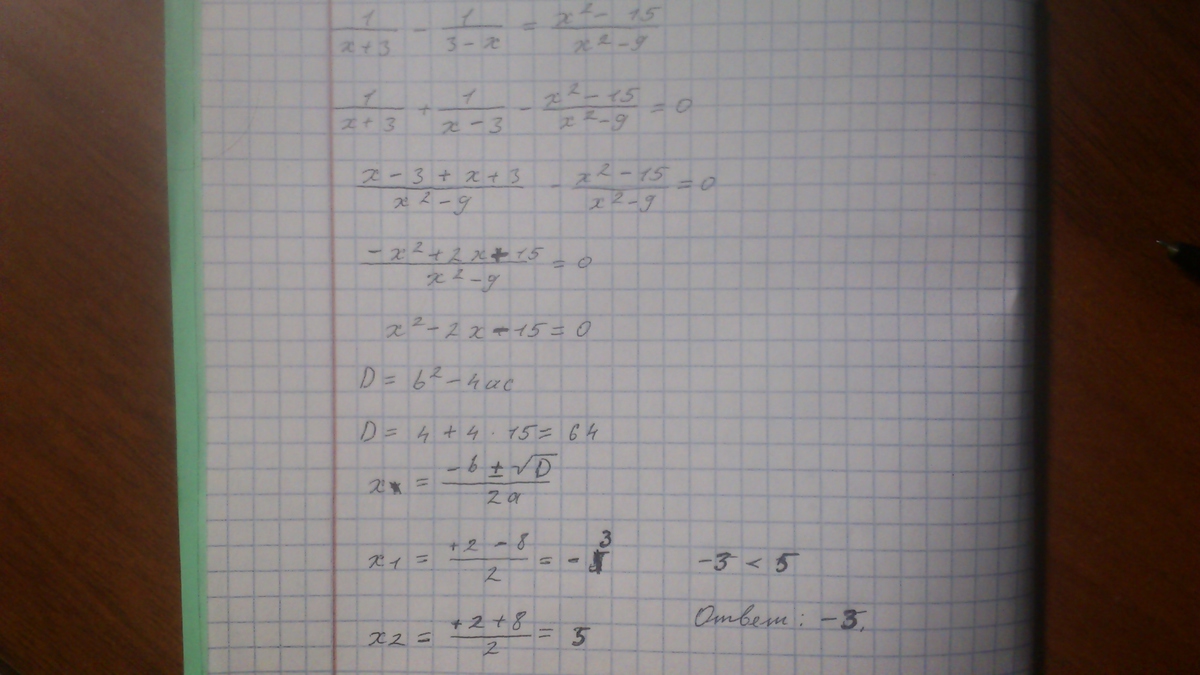 1/(x+3) - 1/(3-x) = (x²-15)/(x²-9)
1/(x+3) + 1/(x-3) - (x²-15)/(x²-9) = 0
(x-3+x+3)/(x²-9) - (x²-15)/(x²-9) = 0
(-x²+2x+15)/(x²-9) = 0
x²-2x-15=0
D = b²-4ac
D = 4+4·15=64
x = (-b±√D)/(2a)
x1 = (+2-8)/2 = -3
-3 < 5
x2 = (+2+8)/2 = 5
Ответ: -3.